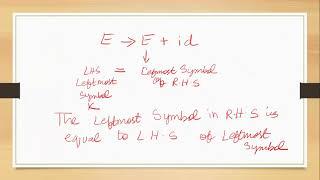 E → E + id
↓
LHS = Leftmost Symbol
Leftmost of R.H.S
Symbol
The Leftmost Symbol in R.H.S is
equal to L.H.S of Leftmost
Symbol